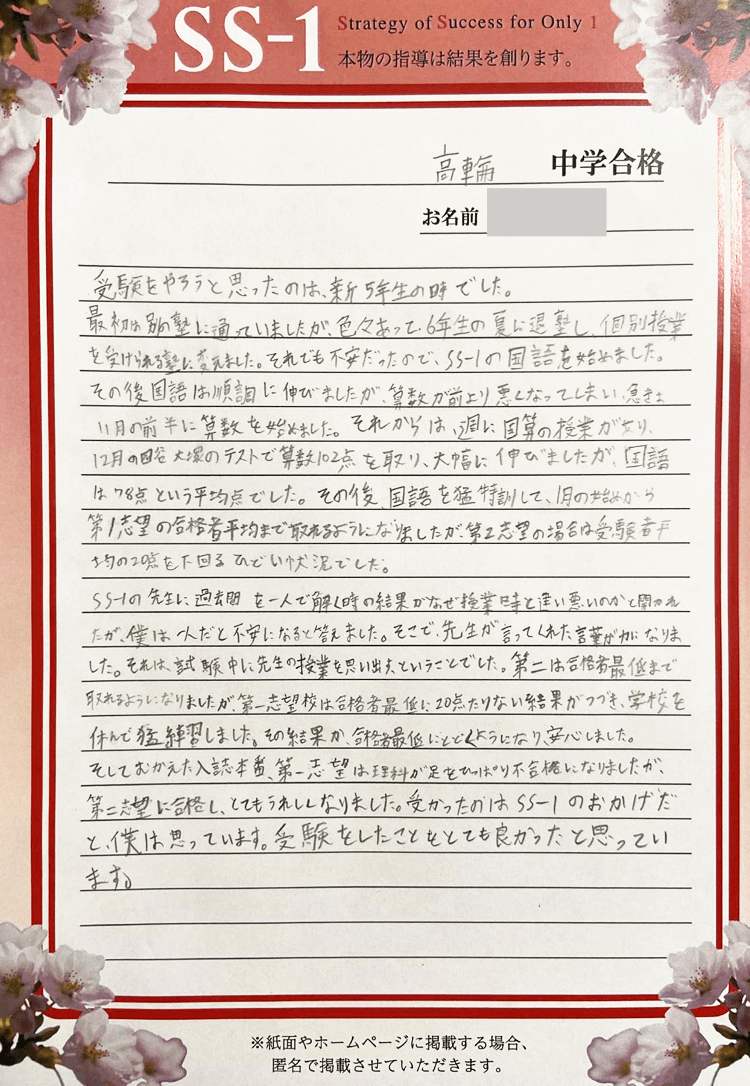 SS-1
Strategy of Success for Only 1
本物の指導は結果を創ります。
高輪 中学合格
お名前
受験をやろうと思ったのは、新5年生の時でした。
最初は別の塾に通っていましたが、色々あって、6年生の夏に退塾し、個別授業
を受けられる塾に変えました。それでも不安だったので、SS-1の国語を始めました。
その後国語は順調に伸びましたが、算数が前より悪くなってしまい、急きょ
11月の前半に算数を始めました。それからは、週に国算の授業があり、
12月の四谷大塚のテストで算数102点を取り、大幅に伸びましたが、国語
は78点という平均点でした。その後、国語を猛特訓して、1月の始めから
第1志望の合格者平均まで取れるようになりましたが、第2志望の場合は受験者平
均の20点を下回るひどい状況でした。
SS-1の先生に過去問を一人で解く時の結果がなぜ授業時と違い悪いのかと聞かれ
たが、僕は一人だと不安になると答えました。そこで、先生が言ってくれた言葉が力になりま
した。それは、試験中に先生の授業を思い出すということでした。第二は合格者最低まで
取れるようになりましたが、第一志望校は合格者最低に20点たりない結果がつづき、学校を
休んで猛練習しました。その結果か、合格者最低にとどくようになり、安心しました。
そしてむかえた入試本番、第一志望は理科が足をひっぱり不合格になりましたが、
第二志望に合格し、とてもうれしくなりました。受かったのはSS-1のおかげだ
と、僕は思っています。受験をしたことをとても良かったと思ってい
ます。
※紙面やホームページに掲載する場合、
匿名で掲載させていただきます。